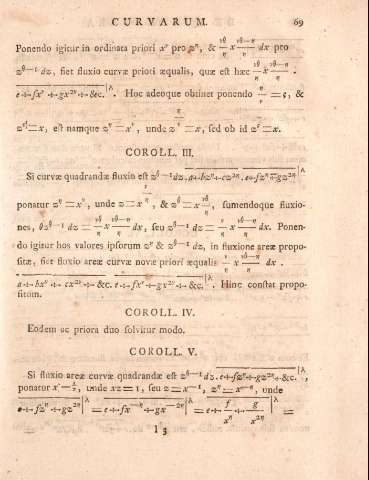 CURVARUM. 69
Ponendo igitur in ordinata priori x^ν pro z^η, & ν/η x^((νθ−η)/η) dx pro
z^(θ−1) dz, fiet fluxio curvæ priori æqualis, quæ est hæc ν/η x^((νθ−η)/η) .
e+fx^ν +gx^2ν +&c.|^λ. Hoc adeoque obtinet ponendo η/ν = ς, &
z^ς = x, est namque z^η = x^ν, unde z^(η/ν) = x, sed ob id z^ς = x.
COROLL. III.
Si curvæ quadrandæ fluxio est z^(θ−1) dz. a+bz^η+cz^2η. e+fz^η+gz^2η|^λ
ponatur z^η = x^ν, unde z = x^(ν/η), & z^θ = x^(νθ/η), sumendoque fluxio-
nes, θz^(θ−1) dz = νθ/η x^((νθ−η)/η) dx, seu z^(θ−1) dz = ν/η x^((νθ−η)/η) dx. Ponen-
do igitur hos valores ipsorum z^η & z^(θ−1) dz, in fluxione areæ propo-
sitæ, fiet fluxio areæ curvæ novæ priori æqualis ν/η x^((νθ−η)/η) dx .
a+bx^ν +cx^2ν +&c. e+fx^ν +gx^2ν +&c.|^λ. Hinc constat propo-
situm.
COROLL. IV.
Eodem ac priora duo solvitur modo.
COROLL. V.
Si fluxio areæ curvæ quadrandæ est z^(θ−1) dz. e+fz^η+gz^2η+&c.|^λ,
ponatur x = 1/z, unde xz = 1, seu z = x^−1, z^η = x^−η, unde
e+fz^η+gz^2η|^λ = e+fx^−η+gx^−2η|^λ = e+f/x^η+g/x^2η|^λ =
I 3